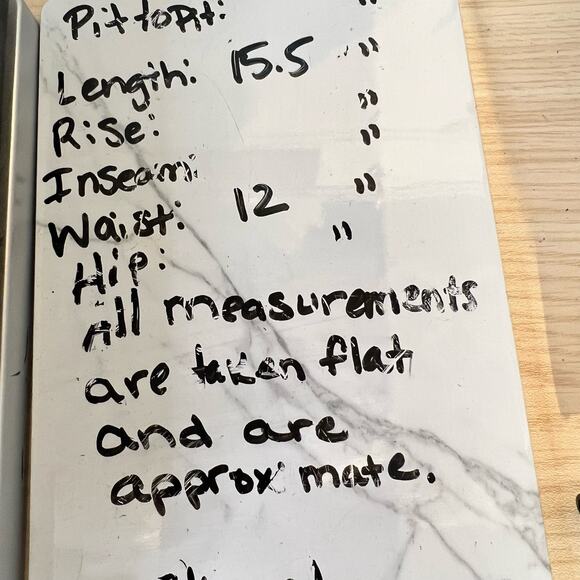 Pit to Pit: "
Length: 15.5 "
Rise: "
Inseam: "
Waist: 12 "
Hip: "
All measurements
are taken flat
and are
approximate.